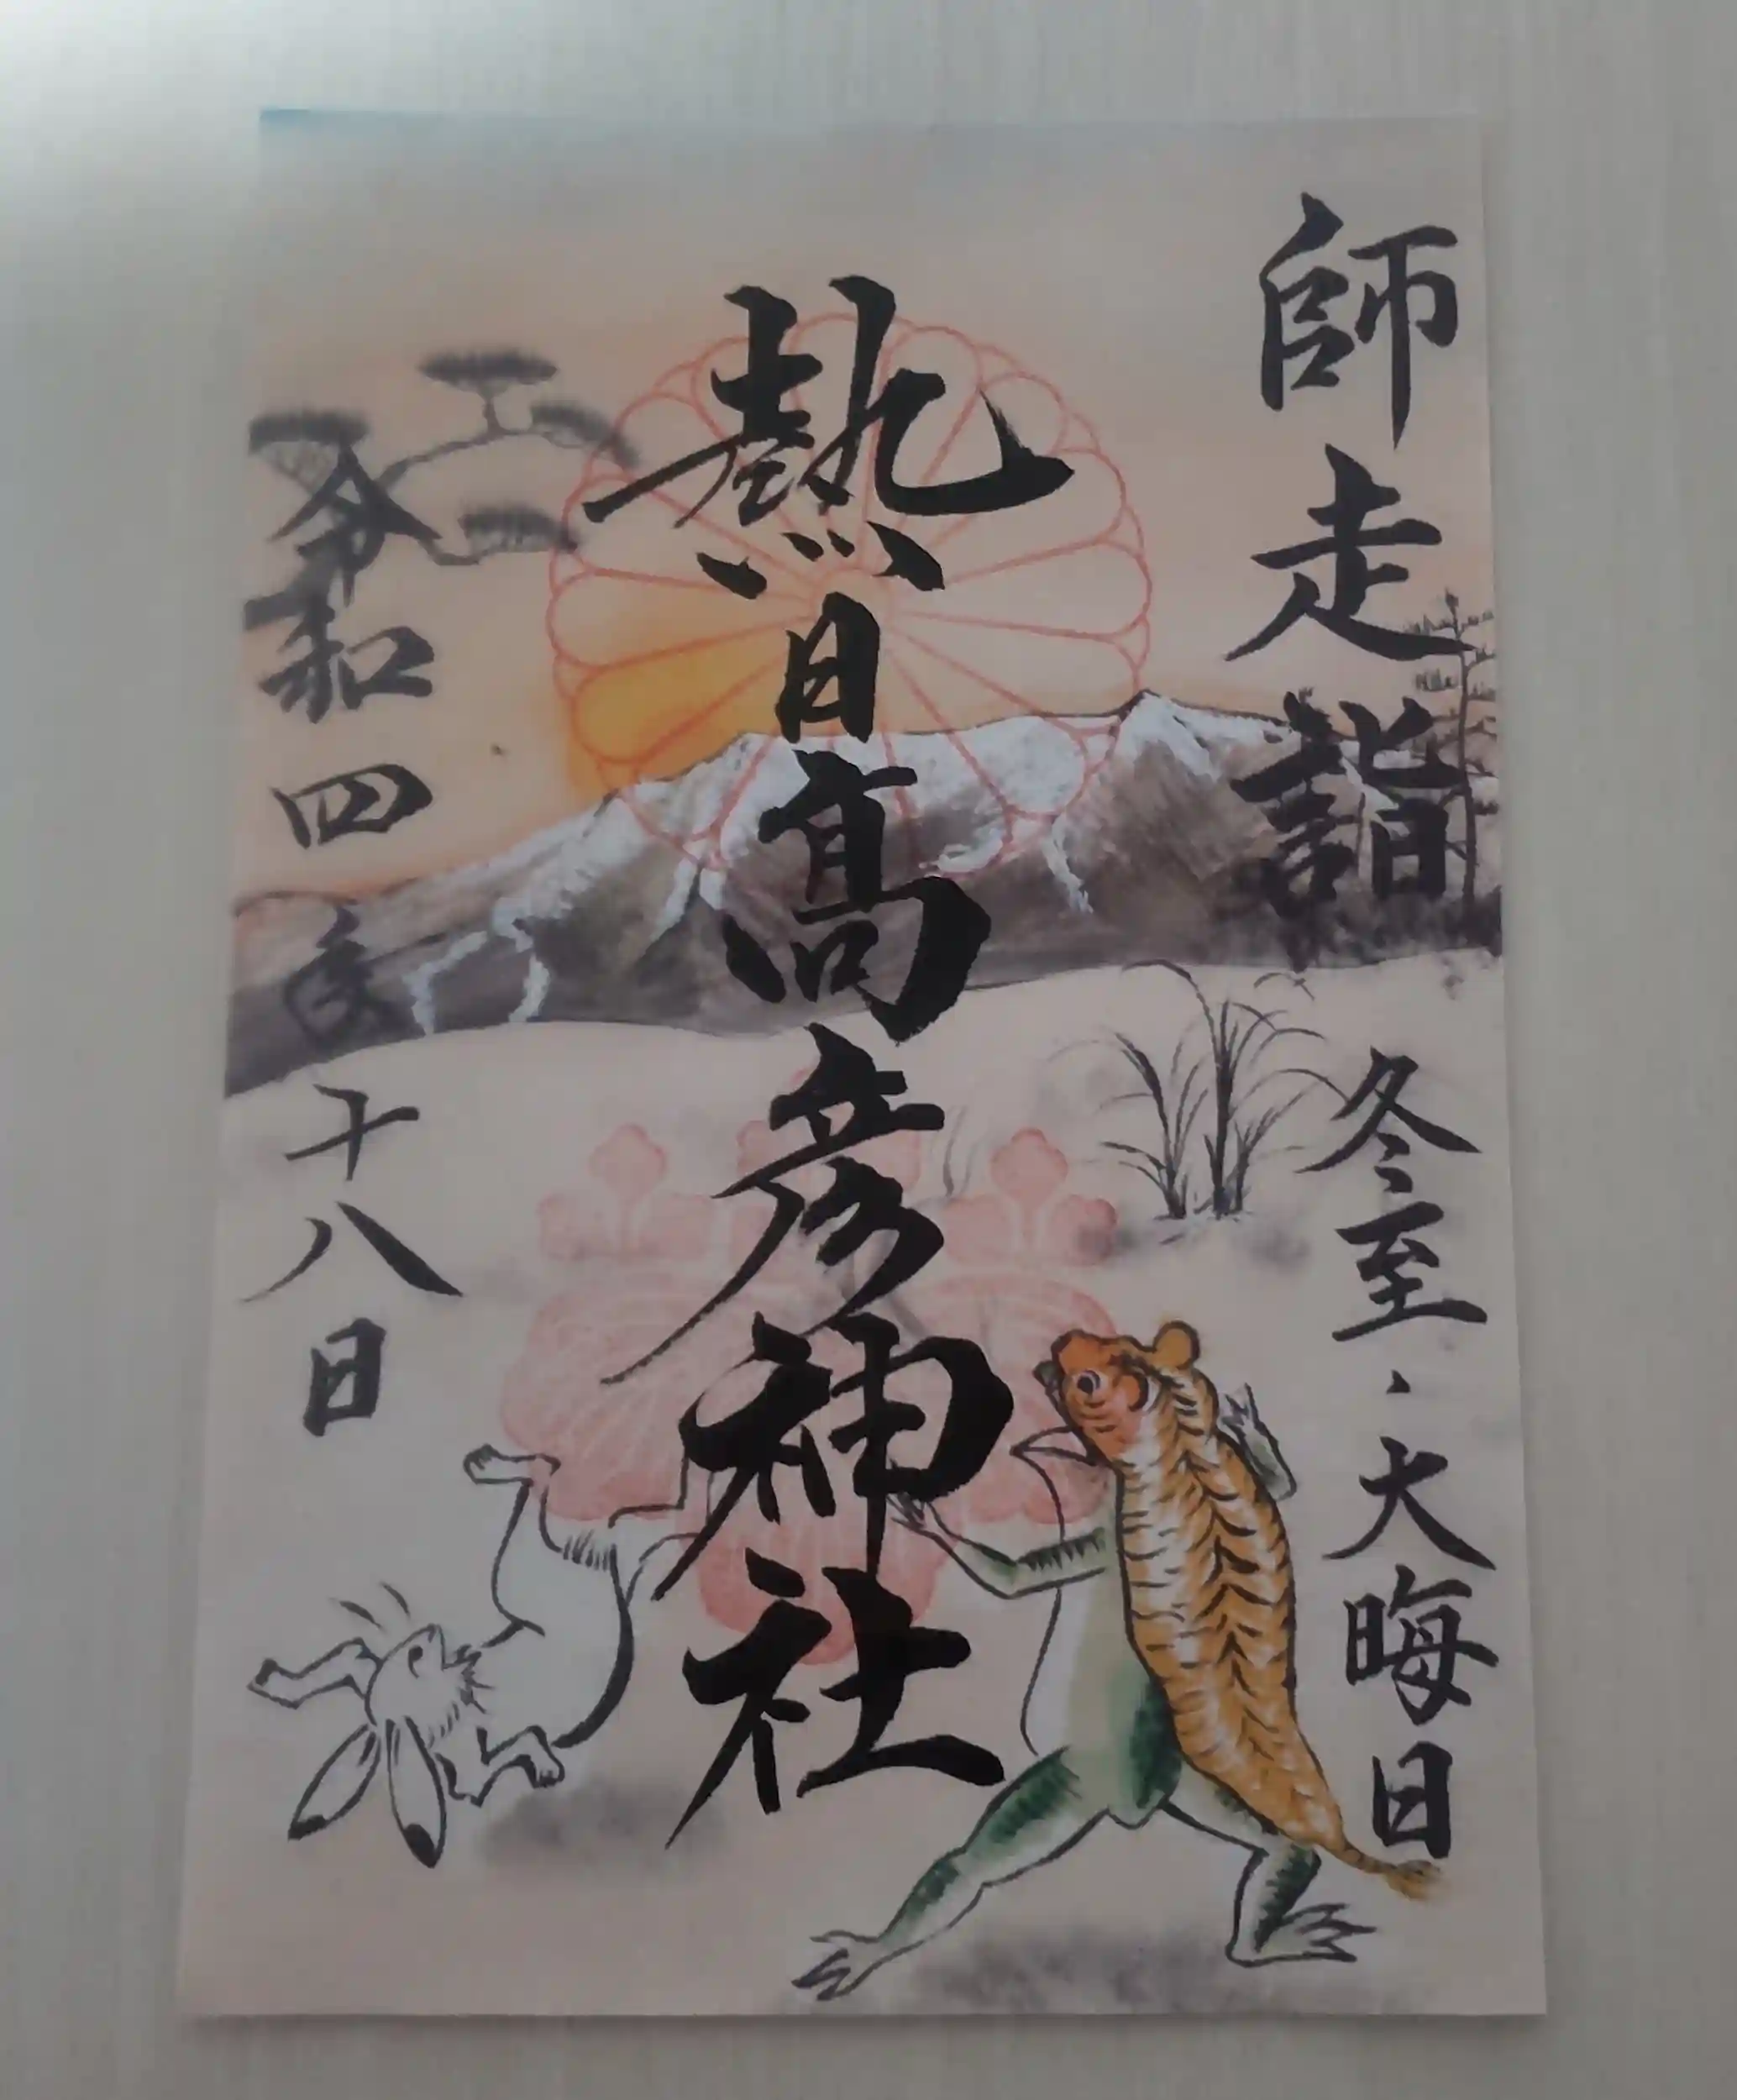 師走詣 冬至・大晦日
熱日高彦神社
令和四 十八日